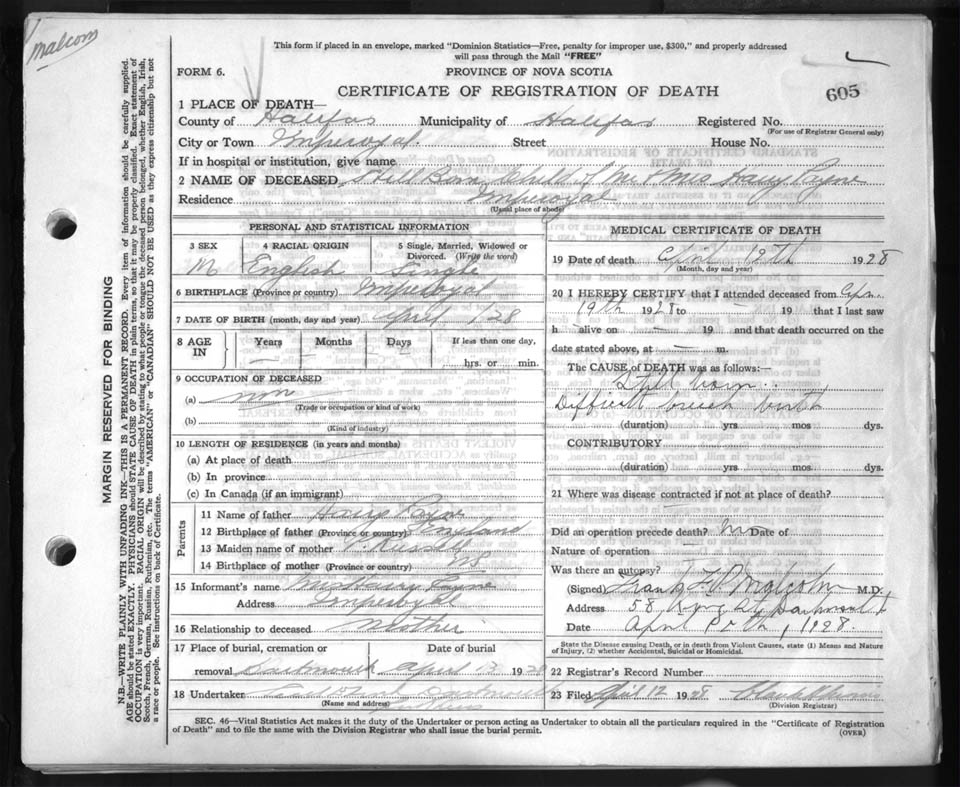 Malcom
This form if placed in an envelope, marked "Dominion Statistics—Free, penalty for improper use, $300," and properly addressed
will pass through the Mail "FREE"
FORM 6.
PROVINCE OF NOVA SCOTIA
CERTIFICATE OF REGISTRATION OF DEATH
605
1 PLACE OF DEATH—
County of Halifax Municipality of Halifax Registered No.
(For use of Registrar General only)
City or Town Imperoyal. Street House No.
If in hospital or institution, give name
2 NAME OF DECEASED Still Born Child of Mr & Mrs Harry Payne
Residence Imperoyal
(Usual place of abode)
PERSONAL AND STATISTICAL INFORMATION
3 SEX 4 RACIAL ORIGIN 5 Single, Married, Widowed or
Divorced. (Write the word)
M English Single
6 BIRTHPLACE (Province or country) Imperoyal
7 DATE OF BIRTH (month, day and year) April /28
8 AGE IN Years Months Days If less than one day,
— — — hrs. or min.
9 OCCUPATION OF DECEASED
(a)
(Trade or occupation or kind of work)
(b)
(Kind of industry)
10 LENGTH OF RESIDENCE (in years and months)
(a) At place of death
(b) In province
(c) In Canada (if an immigrant)
Parents
11 Name of father Harry Payne
12 Birthplace of father (Province or country) England
13 Maiden name of mother Russell
14 Birthplace of mother (Province or country) NS
15 Informant's name Mrs Harry Payne
Address Imperoyal
16 Relationship to deceased Mother
17 Place of burial, cremation or Date of burial
removal Dartmouth April 13 1928
18 Undertaker Dartmouth
(Name and address)
MEDICAL CERTIFICATE OF DEATH
19 Date of death April 19th 1928
(Month, day and year)
20 I HEREBY CERTIFY that I attended deceased from Apr.
19th 1928 to — 19 that I last saw
h — alive on — 19 and that death occurred on the
date stated above, at — m.
The CAUSE of DEATH was as follows:
Still born..
Difficult breech birth
(duration) yrs mos dys.
CONTRIBUTORY
(duration) yrs mos dys.
21 Where was disease contracted if not at place of death?
—
Did an operation precede death? No Date of
Nature of operation —
Was there an autopsy?
(Signed) Frank G Malcolm M.D.
Address 58 King St Dartmouth
Date April , 1928.
State the Disease causing Death, or in death from Violent Causes, state (1) Means and Nature
of Injury, (2) whether Accidental, Suicidal or Homicidal.
22 Registrar's Record Number
23 Filed April 12 1928
(Division Registrar)
SEC. 46—Vital Statistics Act makes it the duty of the Undertaker or person acting as Undertaker to obtain all the particulars required in the "Certificate of Registration
of Death" and to file the same with the Division Registrar who shall issue the burial permit.
(OVER)
MARGIN RESERVED FOR BINDING
N.B.—WRITE PLAINLY WITH UNFADING INK—THIS IS A PERMANENT RECORD. Every item of information should be carefully supplied.
AGE should be stated EXACTLY. PHYSICIANS should STATE CAUSE OF DEATH in plain terms, so that it may be properly classified. Exact statement of
OCCUPATION is very important. RACIAL ORIGIN will be described by stating to what people or tongue the deceased person belonged, whether English, Irish,
Scotch, French, German, Russian, Ruthenian, etc. The terms "AMERICAN" or "CANADIAN" SHOULD NOT BE USED as they express citizenship but not
a race or people. See instructions on back of Certificate.